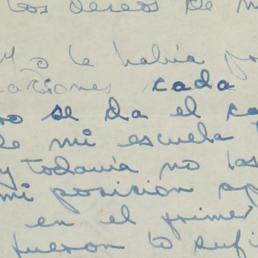 los deseos de m
Yo la había
caciones cada
se da el ca
de mi escuela
y todavía no las
mi posicion ap
en el primer
fueron lo sufi